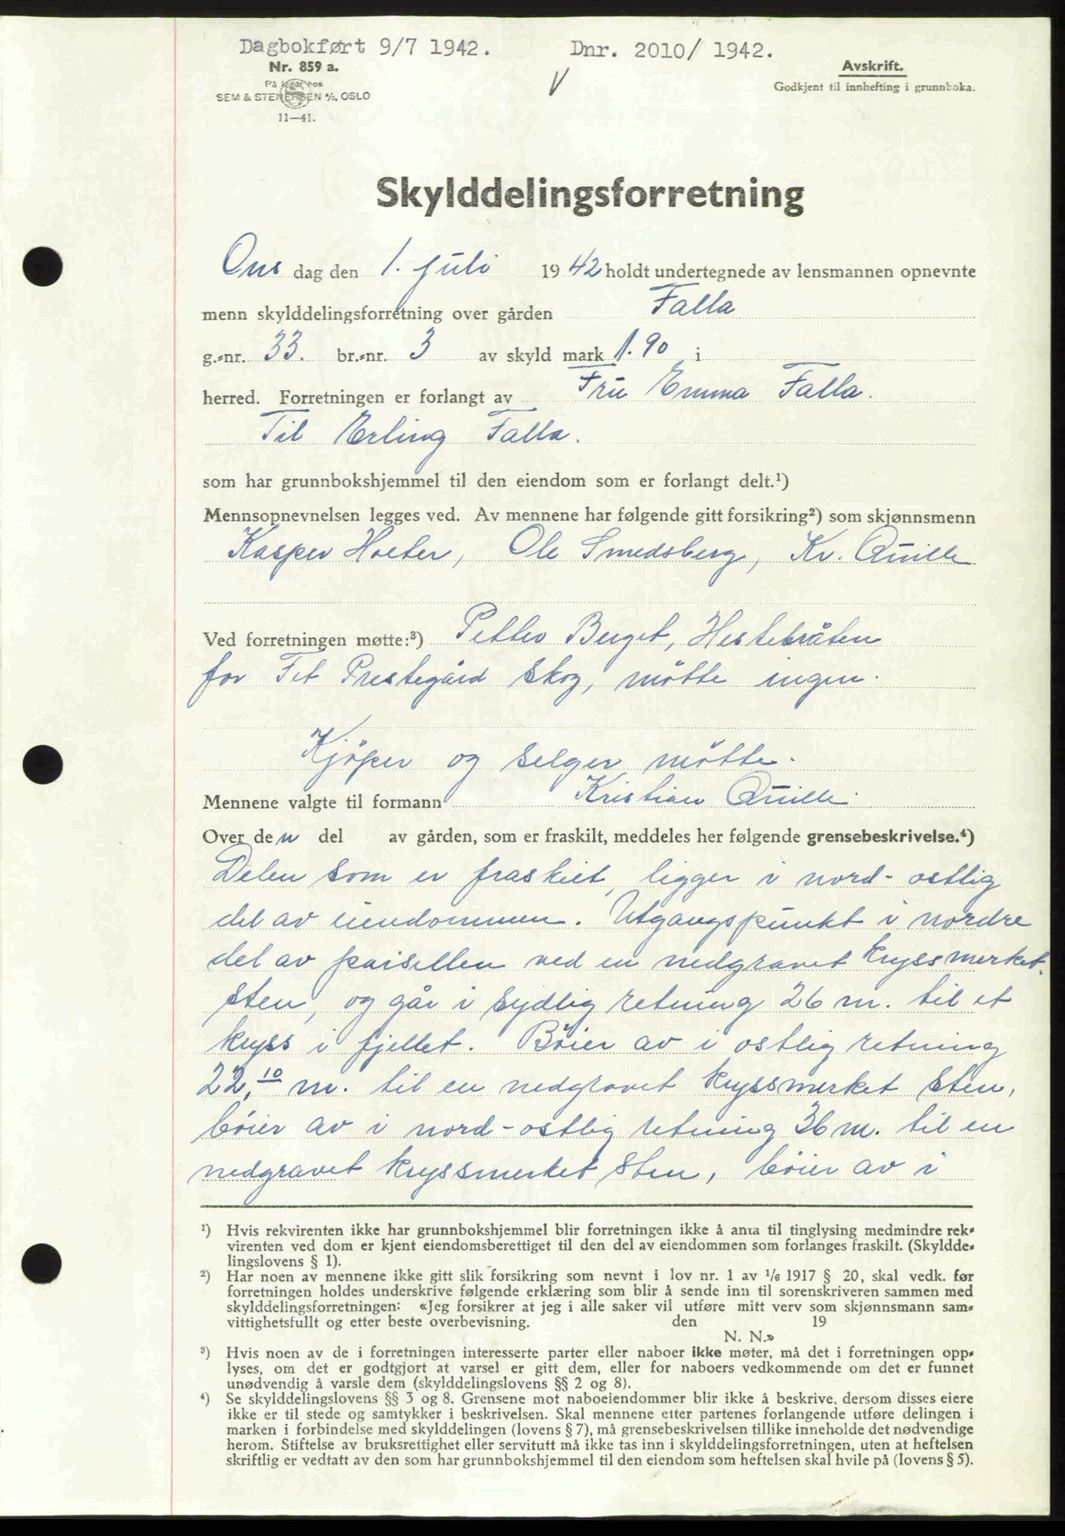 Dagbokført 9/7 1942. Dnr. 2010/ 1942.
Nr. 859 a.
På lager hos
SEM & STENERSEN A/S, OSLO
11—41.
Avskrift.
Godkjent til innhefting i grunnboka.
V
Skylddelingsforretning
Ons dag den 1. juli 1942 holdt undertegnede av lensmannen opnevnte
menn skylddelingsforretning over gården Falla
g.-nr. 33. br.-nr. 3 av skyld mark 1.90 i
herred. Forretningen er forlangt av Fru Emma Falla.
Til Erling Falla.
som har grunnbokshjemmel til den eiendom som er forlangt delt.¹)
Mennsopnevnelsen legges ved. Av mennene har følgende gitt forsikring²) som skjønnsmenn
Kasper Holter, Ole Smedsberg, Kr. Quille
Ved forretningen møtte:³) Petter Berget, Hestebråten
for Fet Prestegård skog, møtte ingen.
Kjøper og selger møtte.
Mennene valgte til formann Kristian Quille.
Over den del av gården, som er fraskilt, meddeles her følgende grensebeskrivelse.⁴)
Delen som er fraskiet, ligger i nord-ostlig
del av eiendommen. Utgangspunkt i nordre
del av parsellen ved en nedgravet kryssmerket
sten, og går i sydlig retning 26 m. til et
kryss i fjellet. Böier av i ostlig retning
22,10 m. til en nedgravet kryssmerket sten,
böier av i nord-ostlig retning 36 m. til en
nedgravet kryssmerket sten, böier av i
¹) Hvis rekvirenten ikke har grunnbokshjemmel blir forretningen ikke å anta til tinglysing medmindre rek-
virenten ved dom er kjent eiendomsberettiget til den del av eiendommen som forlanges fraskilt. (Skyldde-
lingslovens § 1).
²) Har noen av mennene ikke gitt slik forsikring som nevnt i lov nr. 1 av 1/6 1917 § 20, skal vedk. før
forretningen holdes underskrive følgende erklæring som blir å sende inn til sorenskriveren sammen med
skylddelingsforretningen: «Jeg forsikrer at jeg i alle saker vil utføre mitt verv som skjønnsmann sam-
vittighetsfullt og etter beste overbevisning. den 19
N. N.»
³) Hvis noen av de i forretningen interesserte parter eller naboer ikke møter, må det i forretningen opp-
lyses, om det er godtgjort at varsel er gitt dem, eller for naboers vedkommende om det er funnet
unødvendig å varsle dem (skylddelingslovens §§ 2 og 8).
⁴) Se skylddelingslovens §§ 3 og 8. Grensene mot naboeiendommer blir ikke å beskrive, dersom disses eiere
ikke er til stede og samtykker i beskrivelsen. Skal mennene etter partenes forlangende utføre delingen i
marken i forbindelse med skylddelingen (lovens § 7), må grensebeskrivelsen tillike inneholde det nødvendige
herom. Stiftelse av bruksrettighet eller servitutt må ikke tas inn i skylddelingsforretningen, uten at heftelsen
skriftlig er vedtatt av den som har grunnbokshjemmel til den eiendom som heftelsen skal hvile på (lovens § 5).